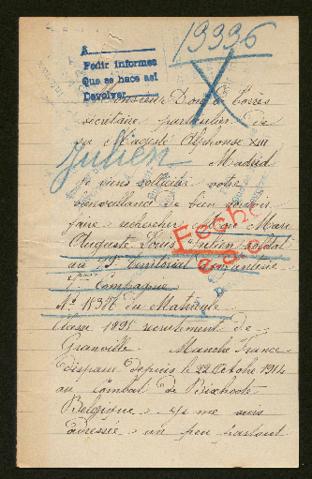 19996
A
Pedir informes
Que se hace así
Devolver
Monsieur Don Torrès
secrétaire particulier de
sa Majesté Alphonse XIII
Julien
Madrid
Je viens solliciter votre
bienveillance de bien vouloir
faire rechercher Marc
Auguste Louis Julien soldat
au territorial infanterie
Compagnie
Fecho
Nº 18376 du Matricule
classe 1898 recrutement de
Granville Manche France
disparu depuis le 22 Octobre 1914
au combat de Bixchoote
Belgique je me suis
adressée un peu partout